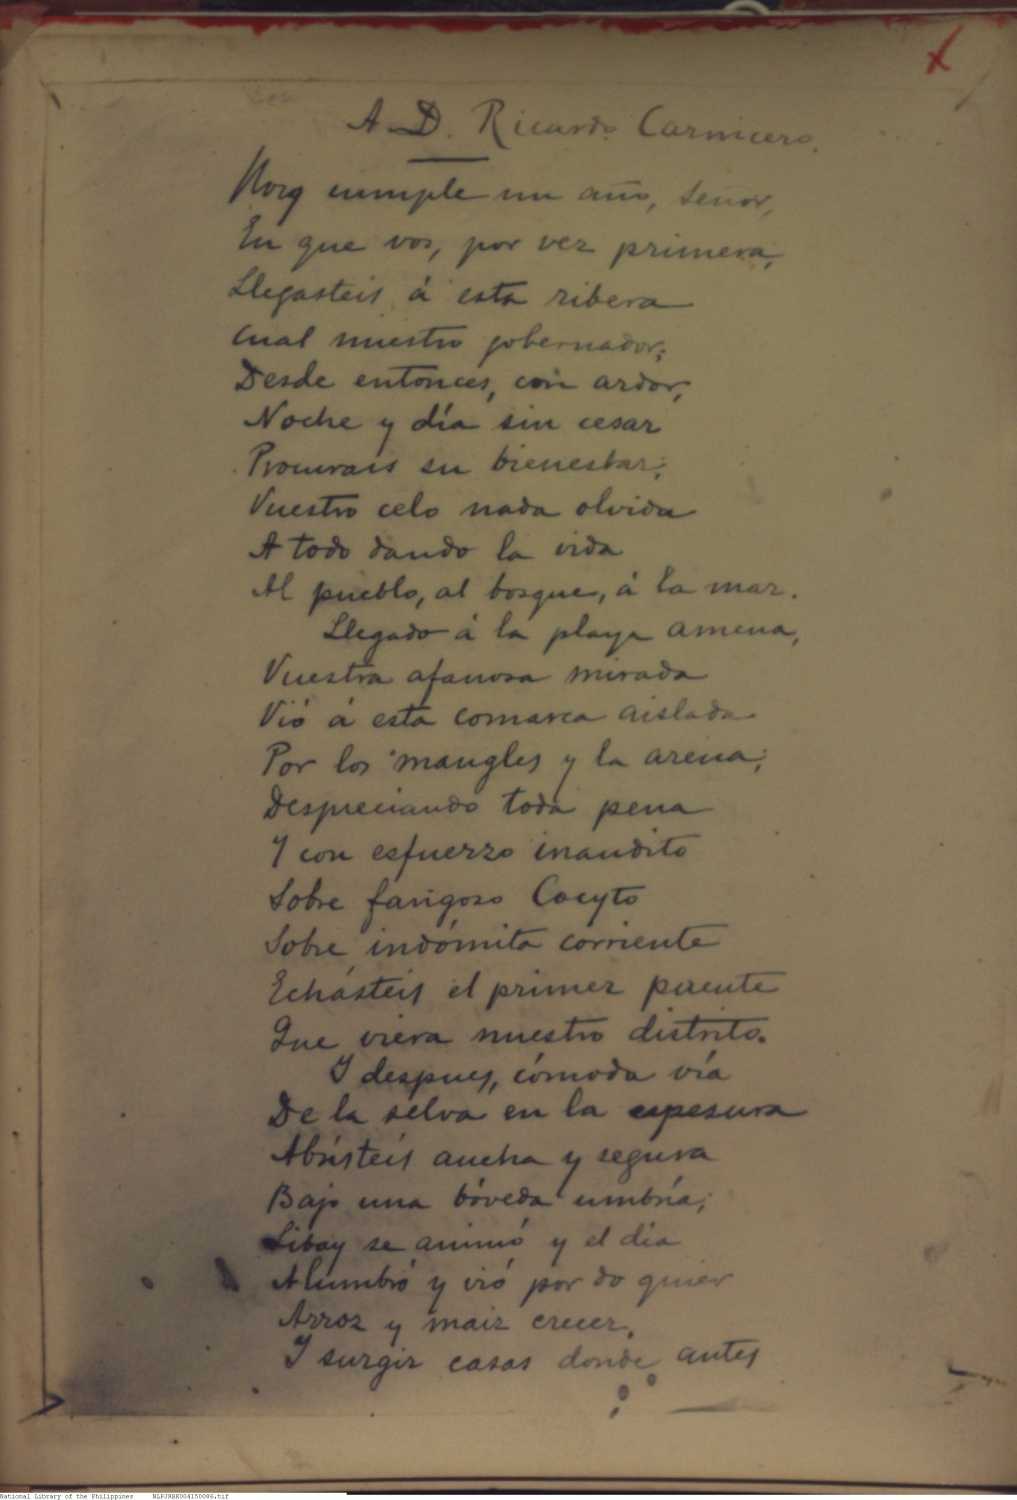 A D. Ricardo Carnicero.
Hoy cumple un año, Señor,
En que vos, por vez primera,
Llegasteis á esta ribera
Cual nuestro gobernador;
Desde entonces, con ardor,
Noche y día sin cesar
Procurais su bienestar;
Vuestro celo nada olvida
A todo dando la vida
Al pueblo, al bosque, á la mar.
Llegado á la playa amena,
Vuestra afanosa mirada
Vió á esta comarca aislada
Por los mangles y la arena;
Despreciando toda pena
Y con esfuerzo inaudito
Sobre fangoso Cocyto
Sobre indómita corriente
Echásteis el primer puente
Que viera nuestro distrito.
Y despues, cómoda vía
De la selva en la espesura
Abristeis ancha y segura
Bajo una bóveda umbría;
Libay se animó y el día
Alumbró y vió por do quier
Arroz y maiz crecer,
Y surgir casas donde antes
National Library of the Philippines NLPJRBK004150096.tif